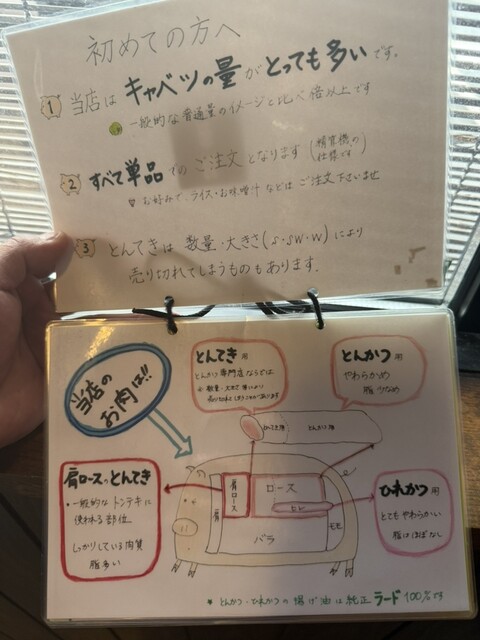 初めての方へ
1 当店は キャベツの量がとっても多いです。
一般的な普通量のイメージと比べ 倍以上です
2 すべて単品でのご注文となります (精算機の仕様です)
お好みで、ライス・お味噌汁などはご注文下さいませ
3 とんてきは 数量・大きさ(S・SW・W)により
売り切れてしまうものもあります。
当店の
お肉は!!
とんてき用
とんかつ専門店ならでは
とんかつ用
やわらかめ
脂少なめ
とんてき用
とんかつ用
肩ロースのとんてき
・一般的なトンテキに
使われる部位
しっかりしている肉質
脂多い
肩ロース
ロース
ヒレ
肩
バラ
モモ
ひれかつ用
とてもやわらかい
脂はほぼなし
* とんかつ・ひれかつの揚げ油は純正ラード100%です